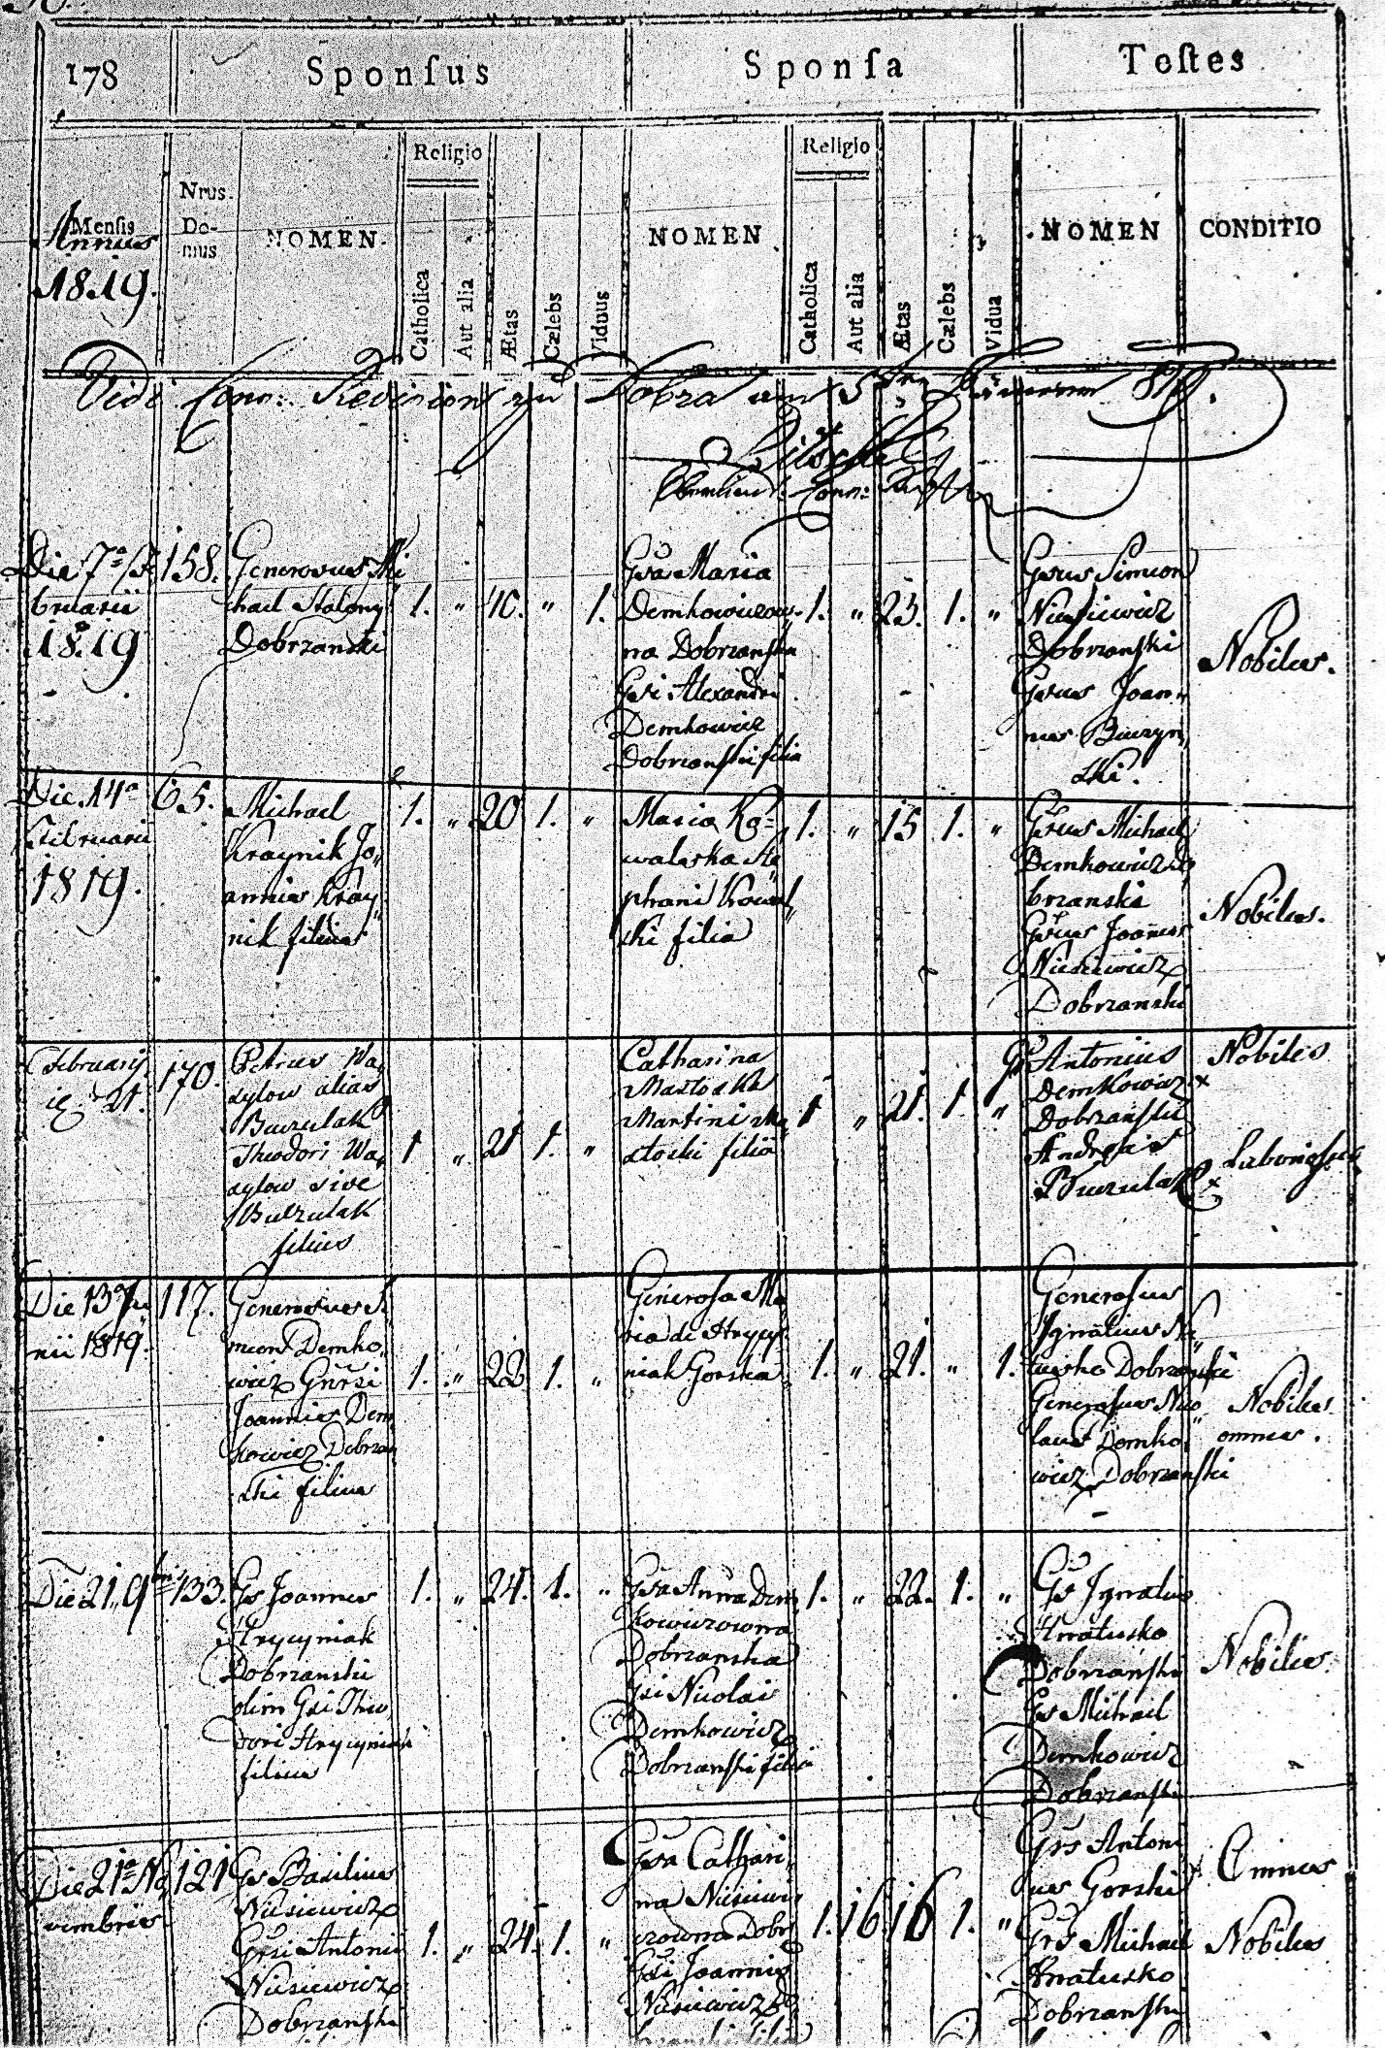 178
Sponſus
Sponſa
Teſtes
Religio
Religio
Nrus.
Do-
mus
Menſis
Annus
1819.
NOMEN.
Catholica
Aut alia
Ætas
Cælebs
Viduus
NOMEN
Catholica
Aut alia
Ætas
Cælebs
Vidua
NOMEN
CONDITIO
Vidi Conn: Revision zu Dobra am
Die 7a Fe
bruarii
1819
158.
Generosus Mi
chael Stalony
Dobrzanski
1. " 40. " 1.
Gsa Maria
Demkowiczow
na Dobrzanska
Gsi Alexandri
Demkowicz
Dobrzanski filia
1. " 23. 1. "
Gsus Simeon
Niusiewicz
Dobrzanski
Gsus Joan
nes
ski.
Nobiles.
Die 14a
Februarii
1819.
65.
Michael
Kraynik Jo
annis Kray
nik filius
1. " 20 1. "
Maria Ko=
walska Ste
phani Kowal
ski filia
1. " 15 1. "
Gsus Michael
Demkowicz Do
brzanski
Gsus Joannes
Niusiewicz
Dobrzanski
Nobiles.
Februarij
21.
170.
Petrus Wa
sylow alias
Buczulak
Theodori Wa
sylow sive
Buczulak
filius
1 " 21 1. "
Catharina
Matoska
Martini Ma
toski filia
1 " 21. 1. "
Gs Antonius
Demkowicz
Dobrzanski
Andreas
Buczulak
Nobilis
Die 13 Ju
nii 1819.
117.
Generosus Si
meon Demko
wicz Gnrsi
Joannis Dem
kowicz Dobrzan
ski filius
1. " 22 1. "
Generosa Ma
ria de Hrycy
niak Gorska
1. " 21. " 1.
Generosus
Ignatius
Dobrzanski
Generosus Nico
laus Demko
wicz Dobrzanski
Nobiles
omnes.
Die 21. 9bris
133.
Gs Joannes
Hrycyniak
Dobrzanski
olim Gsi Theo
dori Hrycyniak
filius
1. " 24. 1. "
Gsa Anna Dem
kowiczowna
Dobrzanska
Gsi Nicolai
Demkowicz
Dobrzanski filia
1. " 22. 1. "
Gs Ignatius
Hnatusko
Dobrzanski
Gs Michael
Demkowicz
Dobrzanski
Nobiles.
Die 21a No
vembris
121
Gs Basilius
Niusiewicz
Gsi Antonii
Niusiewicz
Dobrzanski
1. " 24. 1. "
Gsa Cathari
na Niusiewi
czowna Dobr
Gsi Joannis
Niusiewicz Do
brzanski filia
1. 16 16 1. "
Grs Antoni
us Gorski
Grs Michael
Hnatusko
Dobrzanski
Omnes
Nobiles